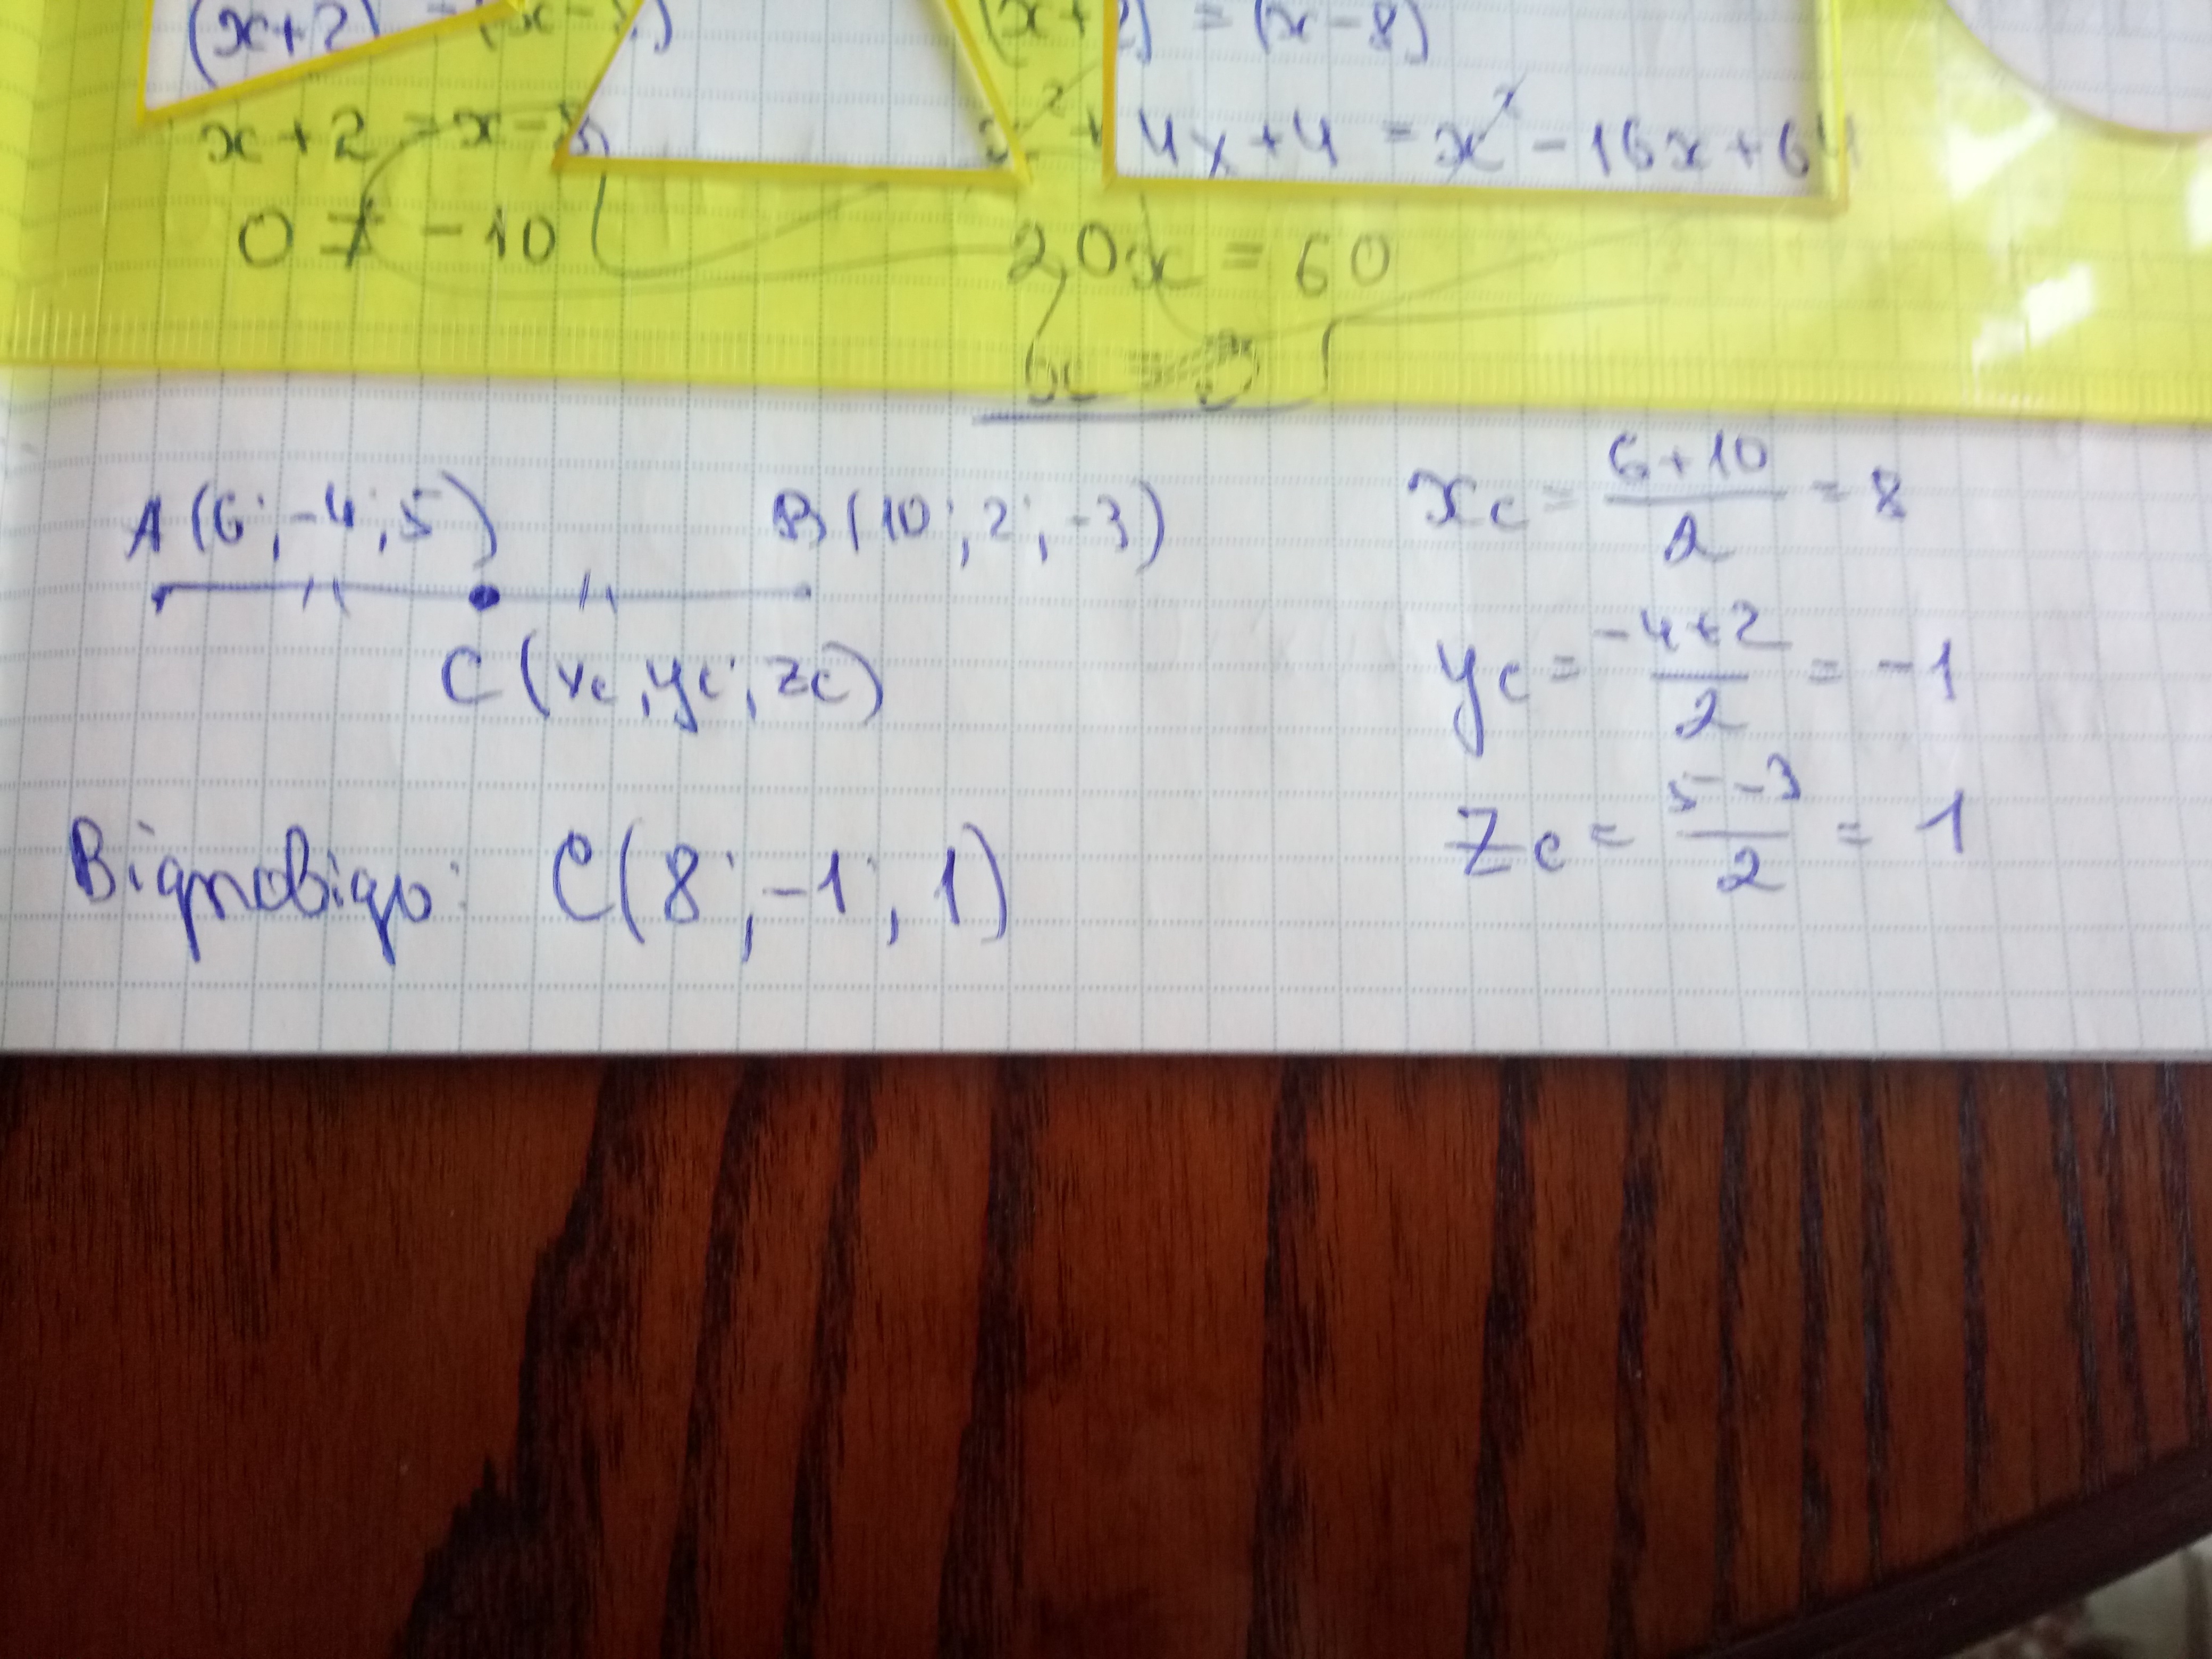 (x+2) = (x-
(x+2) = (x-8)
x+2 = x-8
x² + 4x+4 = x² - 16x+64
0 ≠ -10
20x = 60
x = 3
A(6; -4; 5)
B(10; 2; -3)
xc = 6+10/2 = 8
C(xc; yc; zc)
yc = -4+2/2 = -1
zc = 5-3/2 = 1
Відповідь: C(8; -1; 1)